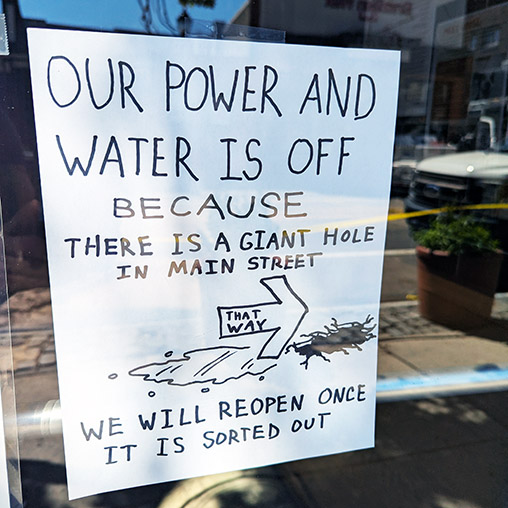 OUR POWER AND
WATER IS OFF
BECAUSE
THERE IS A GIANT HOLE
IN MAIN STREET
THAT
WAY
WE WILL REOPEN ONCE
IT IS SORTED OUT